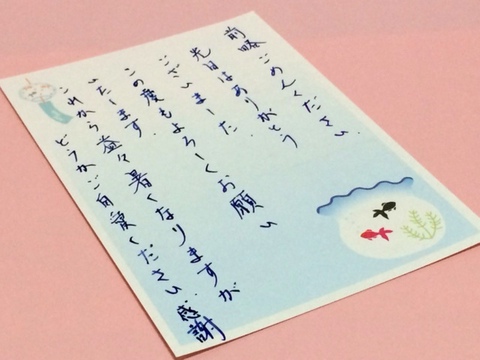 前略ごめんください
先日はありがとう
ございました
この度もよろしくお願い
いたします
これから益々暑くなりますが
どうかご自愛ください 感謝